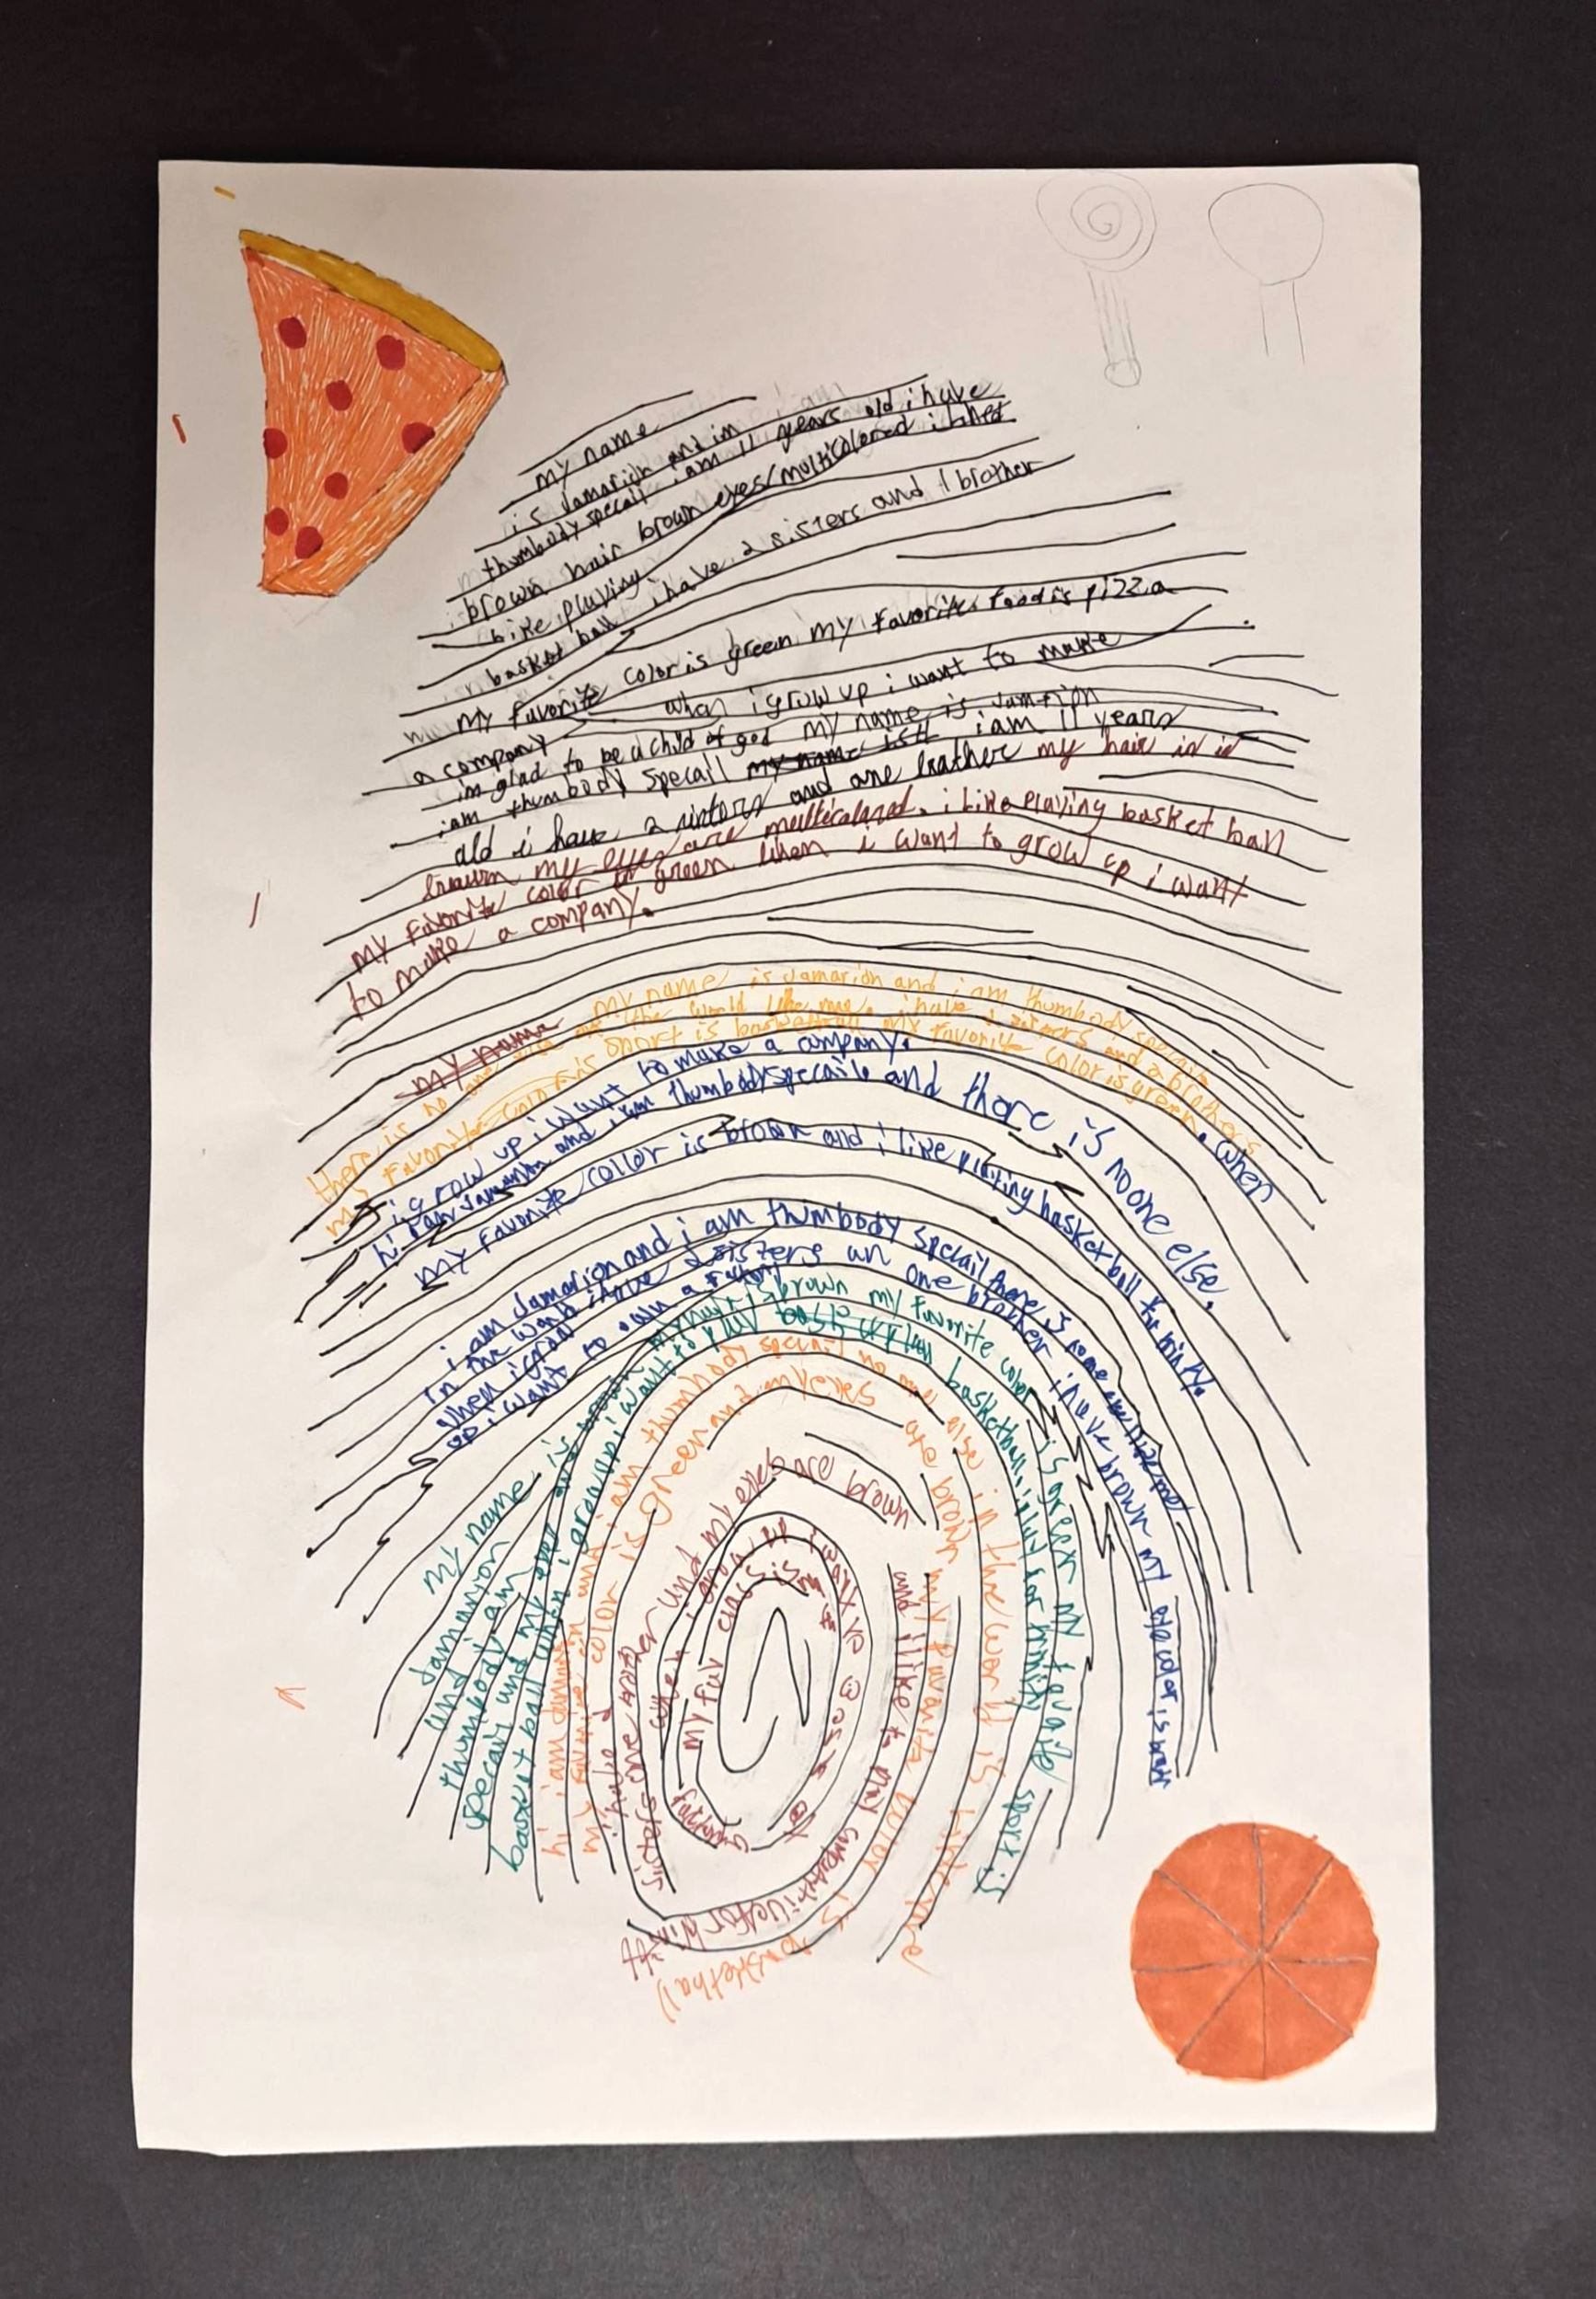 my name
is Jamarion and im
thumbody specail i am 11 years old i have
brown hair brown eyes/multicolored i
Like playing
basket ball i have 2 sisters and 1 brother
my favorite color is green my favorite food is pizza
when i grow up i want to make
a company
im glad to be a child of god my name is Jamarion
iam thumbody specail my name is i am 11 years
old i have 2 sisters and one brother my hair is is
brown my eyes are multicolored. i Like playing basket ball
my favorite color is green when i want to grow up i want
to make a company.
my name
my name is Jamarion and i am thumbody specail
there is no one else in the world like me. i have 2 sisters and a brothers
my favorite color is sport is basketball my favorite color is green. when
i grow up i want to make a company.
hi i am Jamarion and i am thumbodyspecaile and there is no one else.
my favorite color is brown and i like playing basketball
i am Jamarion and i am thumbody specail there is none
in the world i have 2 sisters an one brother i have brown my eye color is
when i grow
up i want to own a
my name is
Jamarion my hair is brown my favorite color is green my sport is
and i am
thumbody
specail and my
basket ball when i grow up i want to play basketball
hi i am Jamarion and i am thumbody specail no one else in the world is like me
my color is green and my eyes are brown my favorite is basketball
i have 2 sisters one and my eyes are brown and i like to
when i grow up i
my fav is